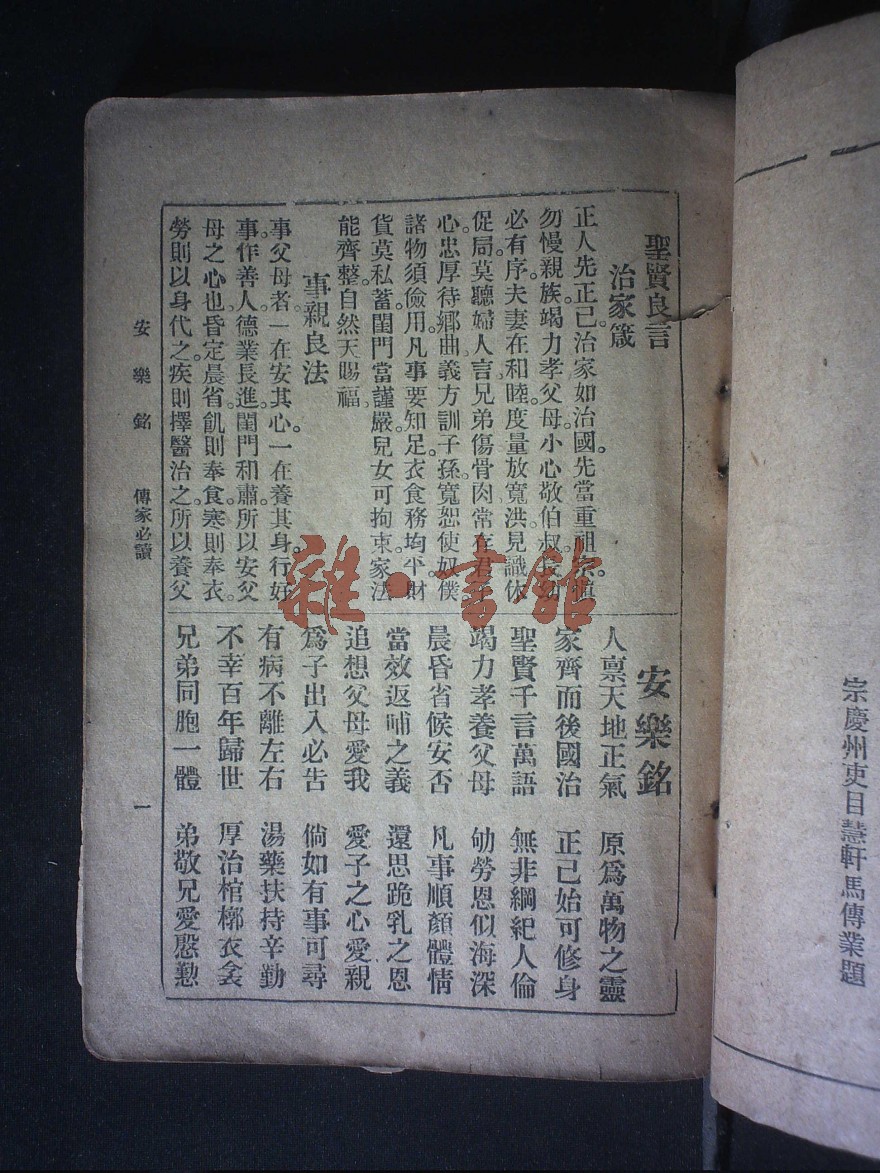 聖賢良言
治家箴
正人先正己。治家如治國。先當重祖宗。愼
勿慢親族。竭力孝父母。小心敬伯叔。長幼
必有序。夫妻在和睦。度量放寬洪。見識休
促局。莫聽婦人言。兄弟傷骨肉。常存君子
心。忠厚待鄉曲。義方訓子孫。寬恕使奴僕。
諸物須儉用。凡事要知足。衣食務均平。財
貨莫私蓄。閨門當謹嚴。兒女可拘束。家法
能齊整。自然天賜福。
事親良法
事父母者。一在安其心。一在養其身。行好
事。作善人。德業長進。閨門和肅。所以安父
母之心也。昏定晨省。飢則奉食。寒則奉衣。
勞則以身代之。疾則擇醫治之。所以養父
安樂銘
人禀天地正氣 原爲萬物之靈
家齊而後國治 正己始可修身
聖賢千言萬語 無非綱紀人倫
竭力孝養父母 劬勞恩似海深
晨昏省候安否 凡事順顏體情
當效返哺之義 還思跪乳之恩
追想父母愛我 愛子之心愛親
爲子出入必告 倘如有事可尋
有病不離左右 湯藥扶持辛勤
不幸百年歸世 厚治棺槨衣衾
兄弟同胞一體 弟敬兄愛慇懃
安樂銘 傳家必讀 一
宗慶州吏目慧軒馬傳業題
雜·書館